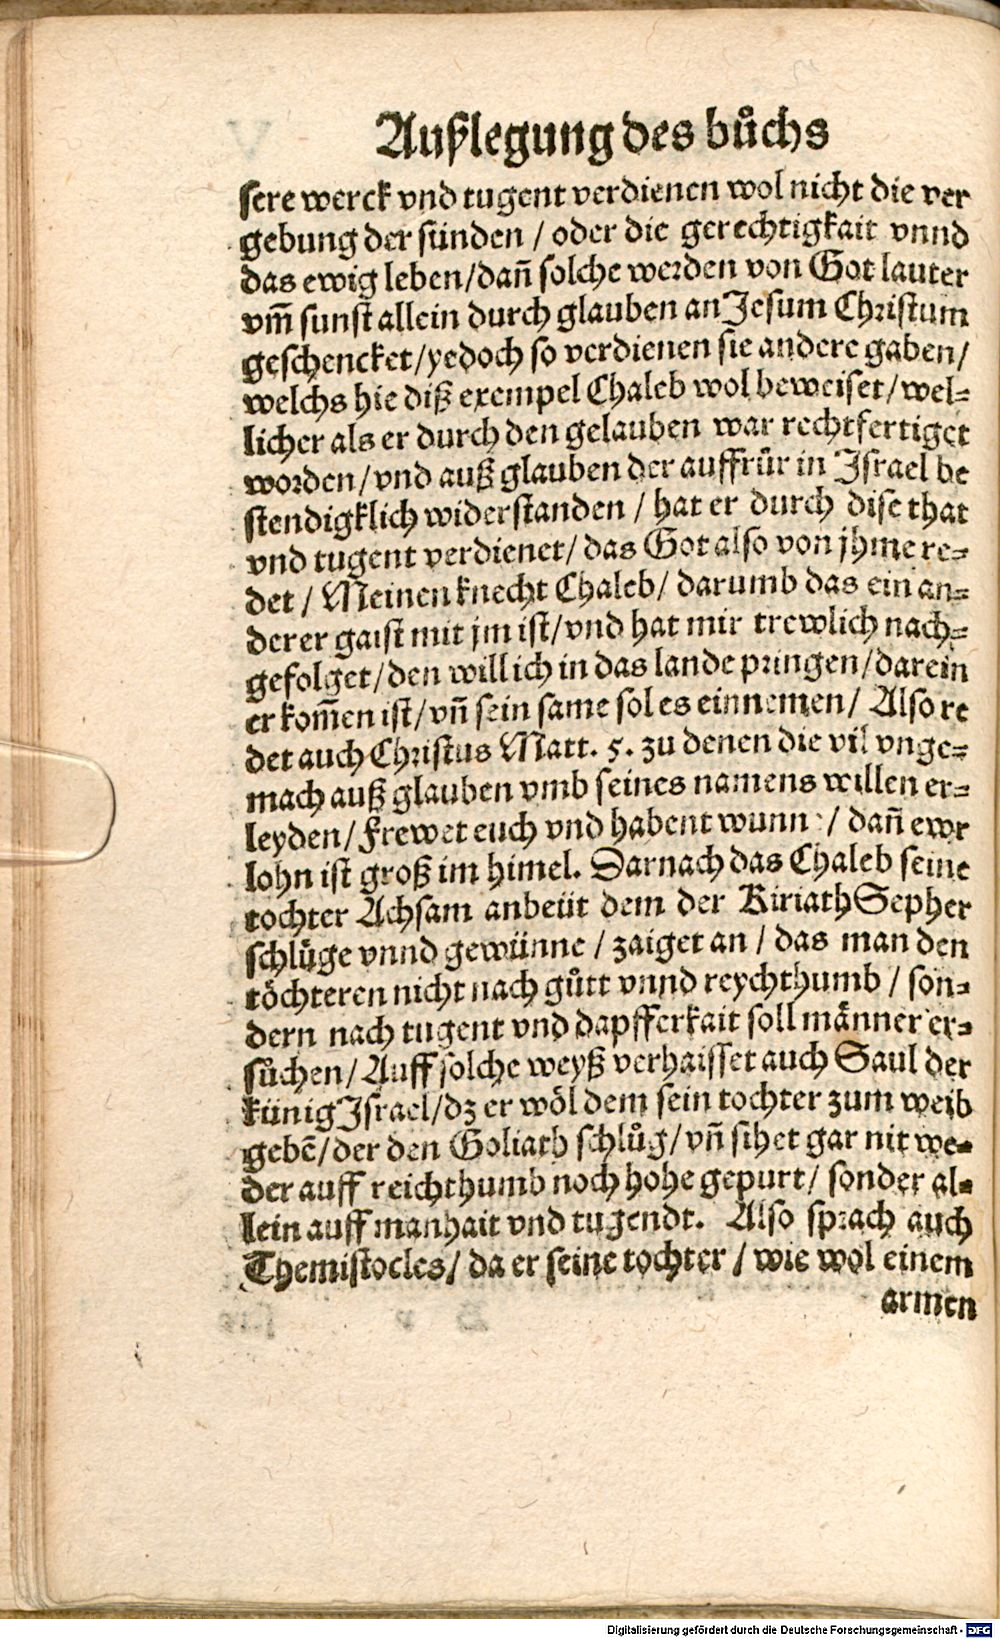 Außlegung des bůchs
sere werck vnd tugent verdienen wol nicht die ver
gebung der sünden / oder die gerechtigkait vnnd
das ewig leben/dañ solche werden von Got lauter
vm̃ sunst allein durch glauben an Jesum Christum
geschencket/yedoch so verdienen sie andere gaben/
welchs hie diß exempel Chaleb wol beweiset/wel-
licher als er durch den gelauben war rechtfertiget
worden/vnd auß glauben der auffrůr in Israel be
stendigklich widerstanden / hat er durch dise that
vnd tugent verdienet/das Got also von jhme re-
det / Meinen knecht Chaleb/ darumb das ein an-
derer gaist mit jm ist/vnd hat mir trewlich nach-
gefolget/den will ich in das lande pringen/darein
er kom̃en ist/vñ sein same sol es einnemen/ Also re
det auch Christus Matt. 5. zu denen die vil vnge-
mach auß glauben vmb seines namens willen er-
leyden/Frewet euch vnd habent wunn / dañ ewr
lohn ist groß im himel. Darnach das Chaleb seine
tochter Achsam anbeüt dem der Kiriath Sepher
schlůge vnnd gewünne / zaiget an / das man den
töchteren nicht nach gůtt vnnd reychthumb / son-
dern nach tugent vnd dapfferkait soll männer er-
sůchen/Auff solche weyß verhaisset auch Saul der
künig Israel/dz er wöl dem sein tochter zum weib
gebē/der den Goliath schlůg/vñ sihet gar nit we-
der auff reichthumb noch hohe gepurt/ sonder al-
lein auff manhait vnd tugendt. Also sprach auch
Themistocles/ da er seine tochter / wie wol einem
armen
Digitalisierung gefördert durch die Deutsche Forschungsgemeinschaft - DFG